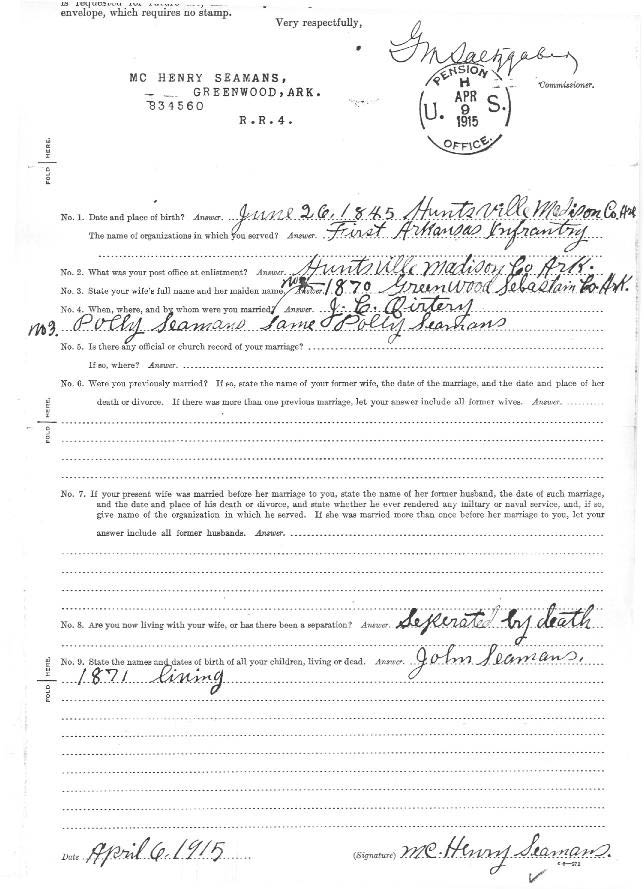 is requested for
envelope, which requires no stamp.
Very respectfully,
GM Saltzgaber
Commissioner.
PENSION
H
U. APR 9 1915 S.
OFFICE.
MC HENRY SEAMANS,
GREENWOOD, ARK.
834560
R.R.4.
FOLD HERE.
No. 1. Date and place of birth? Answer. June 26, 1845 Huntsville Madison Co, Ark
The name of organizations in which you served? Answer. First Arkansas Infrantry
No. 2. What was your post office at enlistment? Answer. Huntsville Madison Co Ark.
No. 3. State your wife's full name and her maiden name. Answer. No 4 1870 Greenwood Sebastain Co Ark.
No. 4. When, where, and by whom were you married? Answer. J. C.
No 3. Polly Seamans. Same Polly Seamans
No. 5. Is there any official or church record of your marriage?
If so, where? Answer.
No. 6. Were you previously married? If so, state the name of your former wife, the date of the marriage, and the date and place of her
death or divorce. If there was more than one previous marriage, let your answer include all former wives. Answer.
FOLD HERE.
No. 7. If your present wife was married before her marriage to you, state the name of her former husband, the date of such marriage,
and the date and place of his death or divorce, and state whether he ever rendered any miltary or naval service, and, if so,
give name of the organization in which he served. If she was married more than once before her marriage to you, let your
answer include all former husbands. Answer.
No. 8. Are you now living with your wife, or has there been a separation? Answer. Seperated by death
No. 9. State the names and dates of birth of all your children, living or dead. Answer. John Seamans.
1871 living
FOLD HERE.
Date April 6, 1915
(Signature) Mc. Henry Seamans.